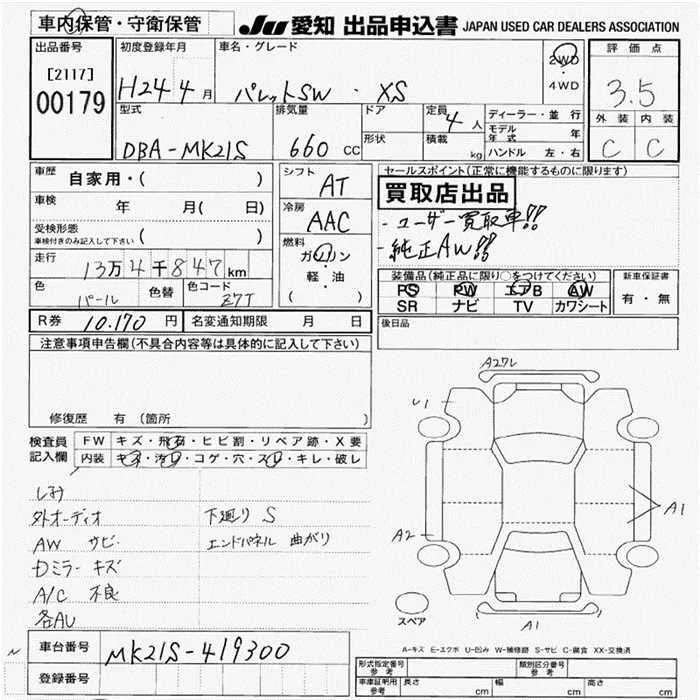 車内保管・守衛保管
JU 愛知 出品申込書 JAPAN USED CAR DEALERS ASSOCIATION
出品番号 初度登録年月 車名・グレード 2WD・4WD 評価点
[2117]
00179 H24 4月 パレットSW・XS 3.5
型式 排気量 ドア 定員 4人 ディーラー・並行 外装 内装
DBA-MK21S 660cc 形状 積載 kg モデル年式 年 C C
ハンドル 左・右
車歴 自家用・( ) シフト AT セールスポイント(正常に機能するものに限ります)
車検 年 月( 日) 冷房 AAC 買取店出品
受検形態 車検付きのみ記入して下さい ( ) ・ユーザー買取車!!
・純正AW!!
走行 13万4千847km 燃料 ガソリン・軽・油 ( )
色 パール 色替 色コード Z7T
装備品(純正品に限り○をつけてください) 新車保証書
PS PW エアB AW 有・無
SR ナビ TV カワシート
R券 10.170円 名変通知期限 月 日 後日品
注意事項申告欄(不具合内容等は具体的に記入して下さい)
修復歴 有(箇所 )
検査員記入欄 FW キズ・飛石・ヒビ割・リペア跡・X要
内装 キズ・汚レ・コゲ・穴・スレ・キレ・破レ
しみ
外オーディオ 下廻りS
AW サビ エンドパネル 曲がり
Dミラーキズ
A/C 不良
各AU
A2
A1
A1
スペア
A-キズ E-エクボ U-凹み W-補修跡 S-サビ C-腐食 XX-交換済
車台番号 MK21S-419300
登録番号
形式指定番号 参考 類別区分番号 参考
車庫証明用 参考 長さ cm 幅 cm 高さ cm